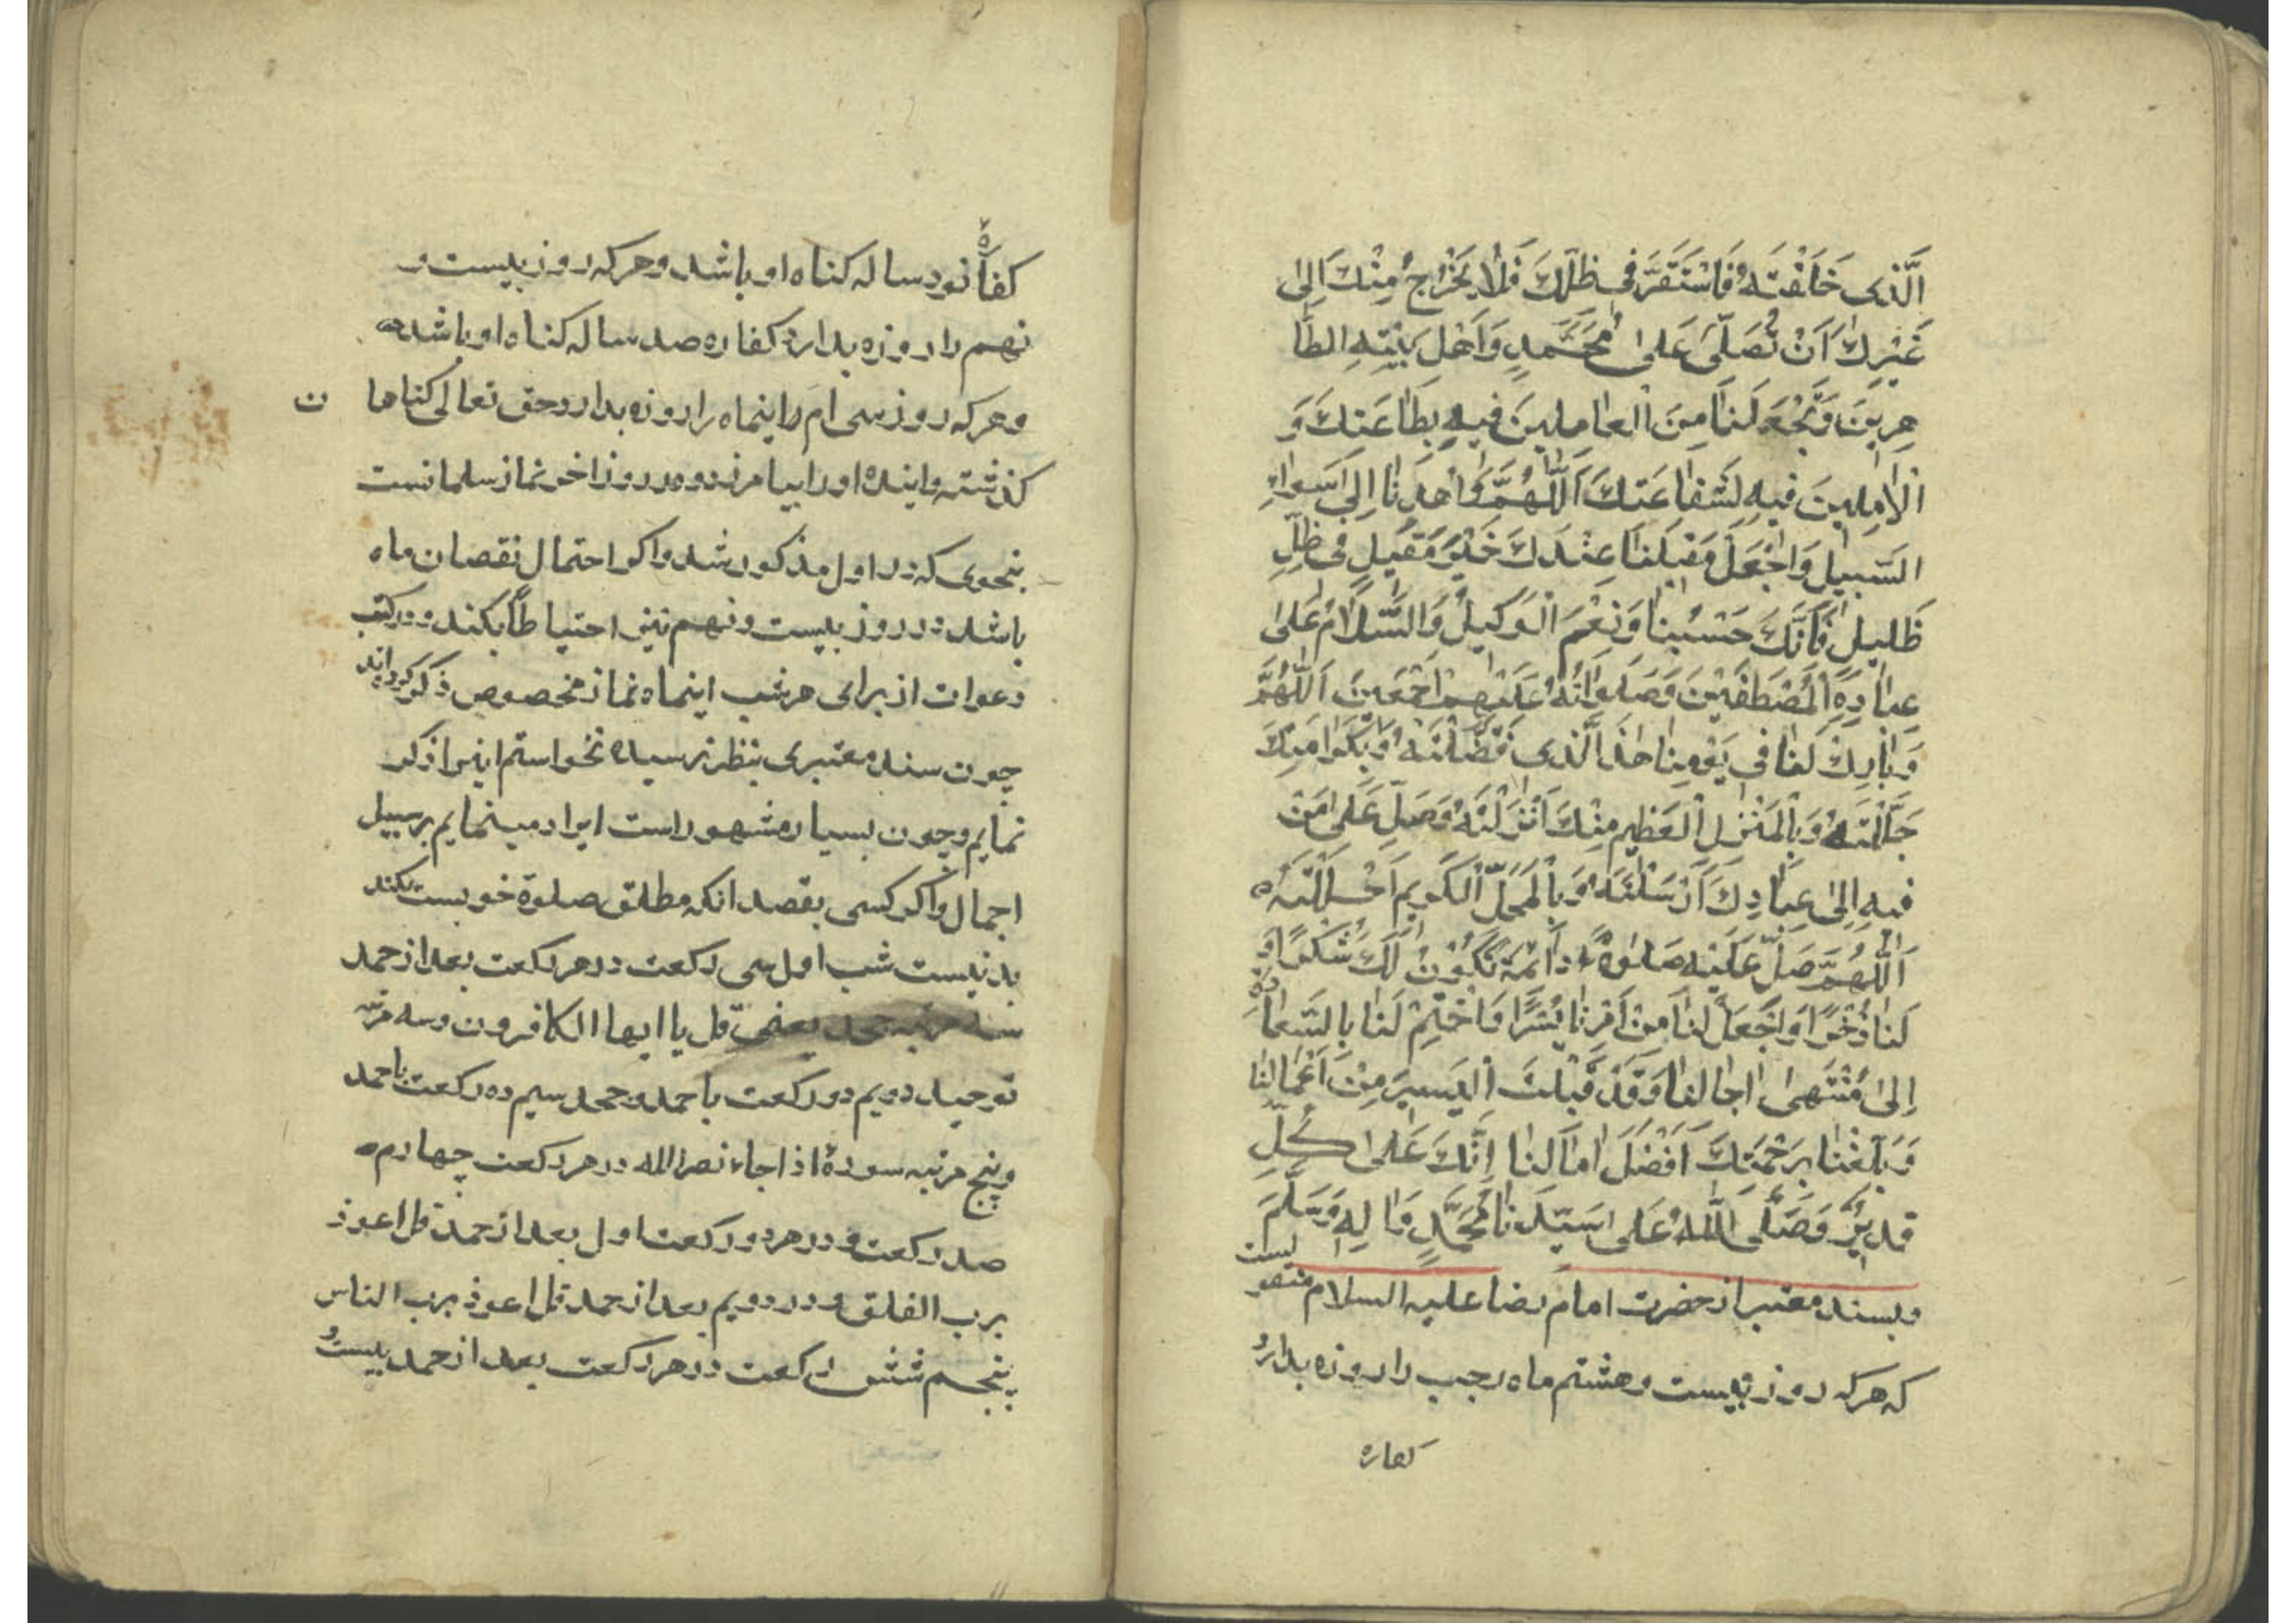 اَلَّذی خَلَقْتَهُ فَاسْتَقَرَّ فی ظِلِّكَ فَلٰا یَخْرُجُ مِنْكَ اِلیٰ
غَیْرِكَ اَنْ تُصَلِّیَ عَلیٰ مُحَمَّدٍ وَاَهْلِ بَیْتِهِ الطّٰا
هِرینَ وَتَجْعَلَنٰا مِنَ الْعٰامِلینَ فیهِ بِطٰاعَتِكَ وَ
الْاٰمِلینَ فیهِ لِشَفٰاعَتِكَ اَللّٰهُمَّ وَاهْدِنٰا اِلیٰ سَوٰاءِ
السَّبیلِ وَاجْعَلْ مَقیلَنٰا عِنْدَكَ خَیْرَ مَقیلٍ فی ظِلٍّ
ظَلیلٍ فَاِنَّكَ حَسْبُنٰا وَنِعْمَ الْوَكیلُ وَالسَّلٰامُ عَلیٰ
عِبٰادِهِ الْمُصْطَفَیْنَ وَصَلَوٰاتُهُ عَلَیْهِمْ اَجْمَعینَ اَللّٰهُمَّ
وَبٰارِكْ لَنٰا فی یَوْمِنٰا هٰذَا الَّذی فَضَّلْتَهُ وَبِكَرٰامَتِكَ
جَلَّلْتَهُ وَبِالْمَنْزِلِ الْعَظیمِ مِنْكَ اَنْزَلْتَهُ وَصَلِّ عَلیٰ مَنْ
فیهِ اِلیٰ عِبٰادِكَ اَرْسَلْتَهُ وَبِالْمَحَلِّ الْكَریمِ اَحْلَلْتَهُ
اَللّٰهُمَّ صَلِّ عَلَیْهِ صَلٰوةً دٰائِمَةً تَكُونُ لَكَ شُكْرًا وَ
لَنٰا ذُخْرًا وَاجْعَلْ لَنٰا مِنْ اَمْرِنٰا یُسْرًا وَاخْتِمْ لَنٰا بِالسَّعٰادَةِ
اِلیٰ مُنْتَهیٰ اٰجٰالِنٰا وَقَدْ قَبِلْتَ الْیَسیرَ مِنْ اَعْمٰالِنٰا
وَبَلِّغْنٰا بِرَحْمَتِكَ اَفْضَلَ اٰمٰالِنٰا اِنَّكَ عَلیٰ كُلِّ
قَدیرٌ وَصَلَّی اللّٰهُ عَلیٰ سَیِّدِنٰا مُحَمَّدٍ وَاٰلِهِ وَسَلَّمَ
وبسند معتبر از حضرت امام رضا علیه السلام منقولست
که هرکه روز بیست وهشتم ماه رجب را روزه بدارد
کفاره
کفارهٔ نود ساله کناه او باشد وهرکه روز بیست و
نهم را روزه بدارد کفاره صد ساله کناه او باشد
وهرکه روز سی ام را اینماه را روزه بدارد حق تعالی کناها ن
کذشته واینده او را بیامرزد ودر روز اخر نماز سلمانست
بنحوی که در اول مذکور شد واکر احتمال نقصان ماه
باشد در روز بیست ونهم نیز احتیاطًا بکند ودر کتب
دعوات از برای هر شب اینماه نماز مخصوص ذکر کرده اند
چون سند معتبری بنظر نرسیده نخواستم اینرا ذکر
نمایم وچون بسیار مشهور است ایراد مینمایم بر سبیل
اجمال واکر کسی بقصد انکه مطلق صلوة خوبست بکند
بد نیست شب اول سی رکعت در هر رکعت بعد از حمد
سه مرتبه جحد یعنی قل یا ایها الکافرون وسه مرتبه
توحید دویم دو رکعت با حمد وجحد سیم ده رکعت با حمد
وپنج مرتبه سورهٔ اذا جاء نصر الله در هر رکعت چهارم
صد رکعت ودر هر دو رکعت اول بعد از حمد قل اعوذ
برب الفلق ودر دویم بعد از حمد قل اعوذ برب الناس
پنجم شش رکعت در هر رکعت بعد از حمد بیست و